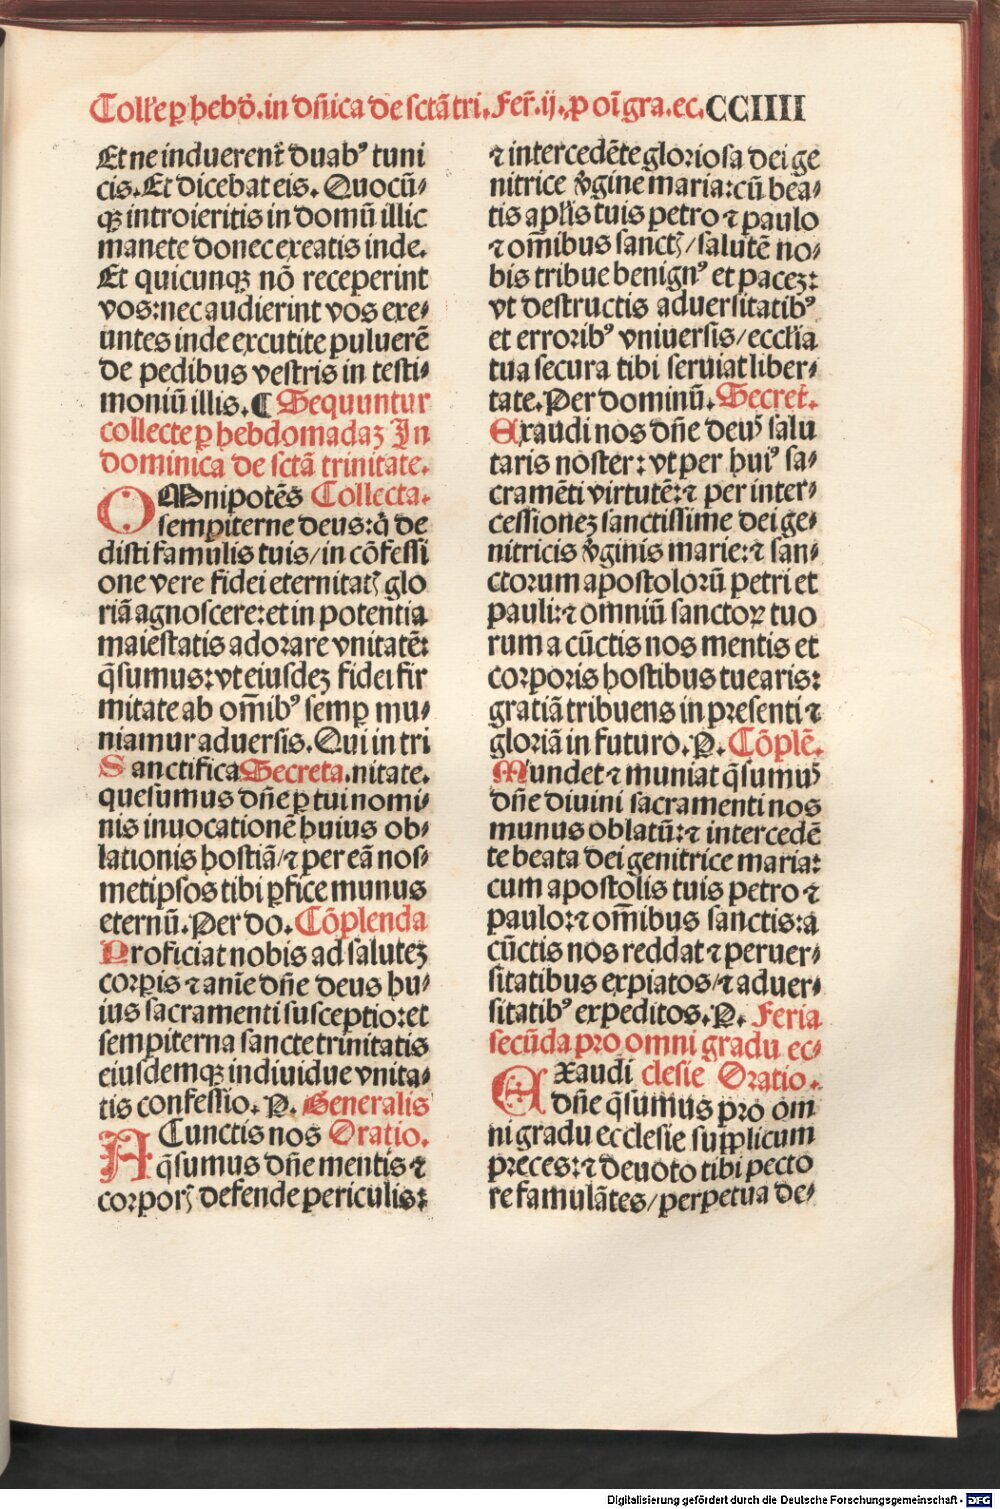 Coll'e ꝑ hebdo̾.in dn̄ica de sctā tri.Fer̄.ij.,p oı̄ gra.ec.CCIIII
Et ne induerent̄ duabꝰ tuni
cis.Et dicebat eis. Quocū⸗
qꝫ introieritis in domū illic
manete donec exeatis inde.
Et quicunqꝫ nō receperint
vos:nec audierint vos exe⸗
untes inde excutite puluerē
de pedibus vestris in testi⸗
moniū illis.¶ Sequuntur
collecte ꝑ hebdomadaꝫ In
dominica de sctā trinitate.
OMnipotēs Collecta.
sempiterne deus:q̄ de
disti famulis tuis/in cōfessi
one vere fidei eternitatꝭ glo
riā agnoscere:et in potentia
maiestatis adorare vnitatē:
q̄sumus:vt eiusdeꝫ fidei fir
mitate ab om̄ibꝰ semꝑ mu⸗
niamur aduersis.Qui in tri
Sanctifica Secreta.nitate.
quesumus dn̄e ꝑ tui nomi⸗
nis inuocationē huius ob⸗
lationis hostiā/⁊ per eā nos⸗
metipsos tibi ꝑfice munus
eternū.Per do. Cōplenda
Proficiat nobis ad saluteꝫ
corꝑis ⁊ anīe dn̄e deus hu⸗
ius sacramenti susceptio:et
sempiterna sancte trinitatis
eiusdemqꝫ indiuidue vnita⸗
tis confessio. P. Generalis
A Cunctis nos Oratio.
q̄sumus dn̄e mentis ⁊
corporꝭ defende periculis:
⁊ intercedēte gloriosa dei ge
nitrice v̾gine maria:cū bea⸗
tis apl'is tuis petro ⁊ paulo
⁊ om̄ibus sanctꝭ/salutē no⸗
bis tribue benignꝰ et paceꝫ:
vt destructis aduersitatibꝰ
et erroribꝰ vniuersis/eccl'ia
tua secura tibi seruiat liber⸗
tate.Per dominū. Secret̄.
Exaudi nos dn̄e deuꝰ salu
taris noster:vt per huiꝰ sa⸗
cramēti virtutē:⁊ per inter⸗
cessioneꝫ sanctissime dei ge⸗
nitricis v̾ginis marie:⁊ san⸗
ctorum apostolorū petri et
pauli:⁊ omniū sanctoꝝ tuo
rum a cūctis nos mentis et
corporis hostibus tuearis:
gratiā tribuens in presenti ⁊
gloriā in futuro.P. Cōplē.
Mundet ⁊ muniat q̄sumuꝰ
dn̄e diuini sacramenti nos
munus oblatū:⁊ intercedē
te beata dei genitrice maria:
cum apostolis tuis petro ⁊
paulo:⁊ om̄ibus sanctis:a
cūctis nos reddat ⁊ peruer⸗
sitatibus expiatos/⁊ aduer⸗
sitatibꝰ expeditos.P. Feria
secūda pro omni gradu ec⸗
EXaudi clesie Oratio.
dn̄e q̄sumus pro om
ni gradu ecclesie supplicum
preces:⁊ deuoto tibi pecto
re famulātes/perpetua de⸗
Digitalisierung gefördert durch die Deutsche Forschungsgemeinschaft - DFG